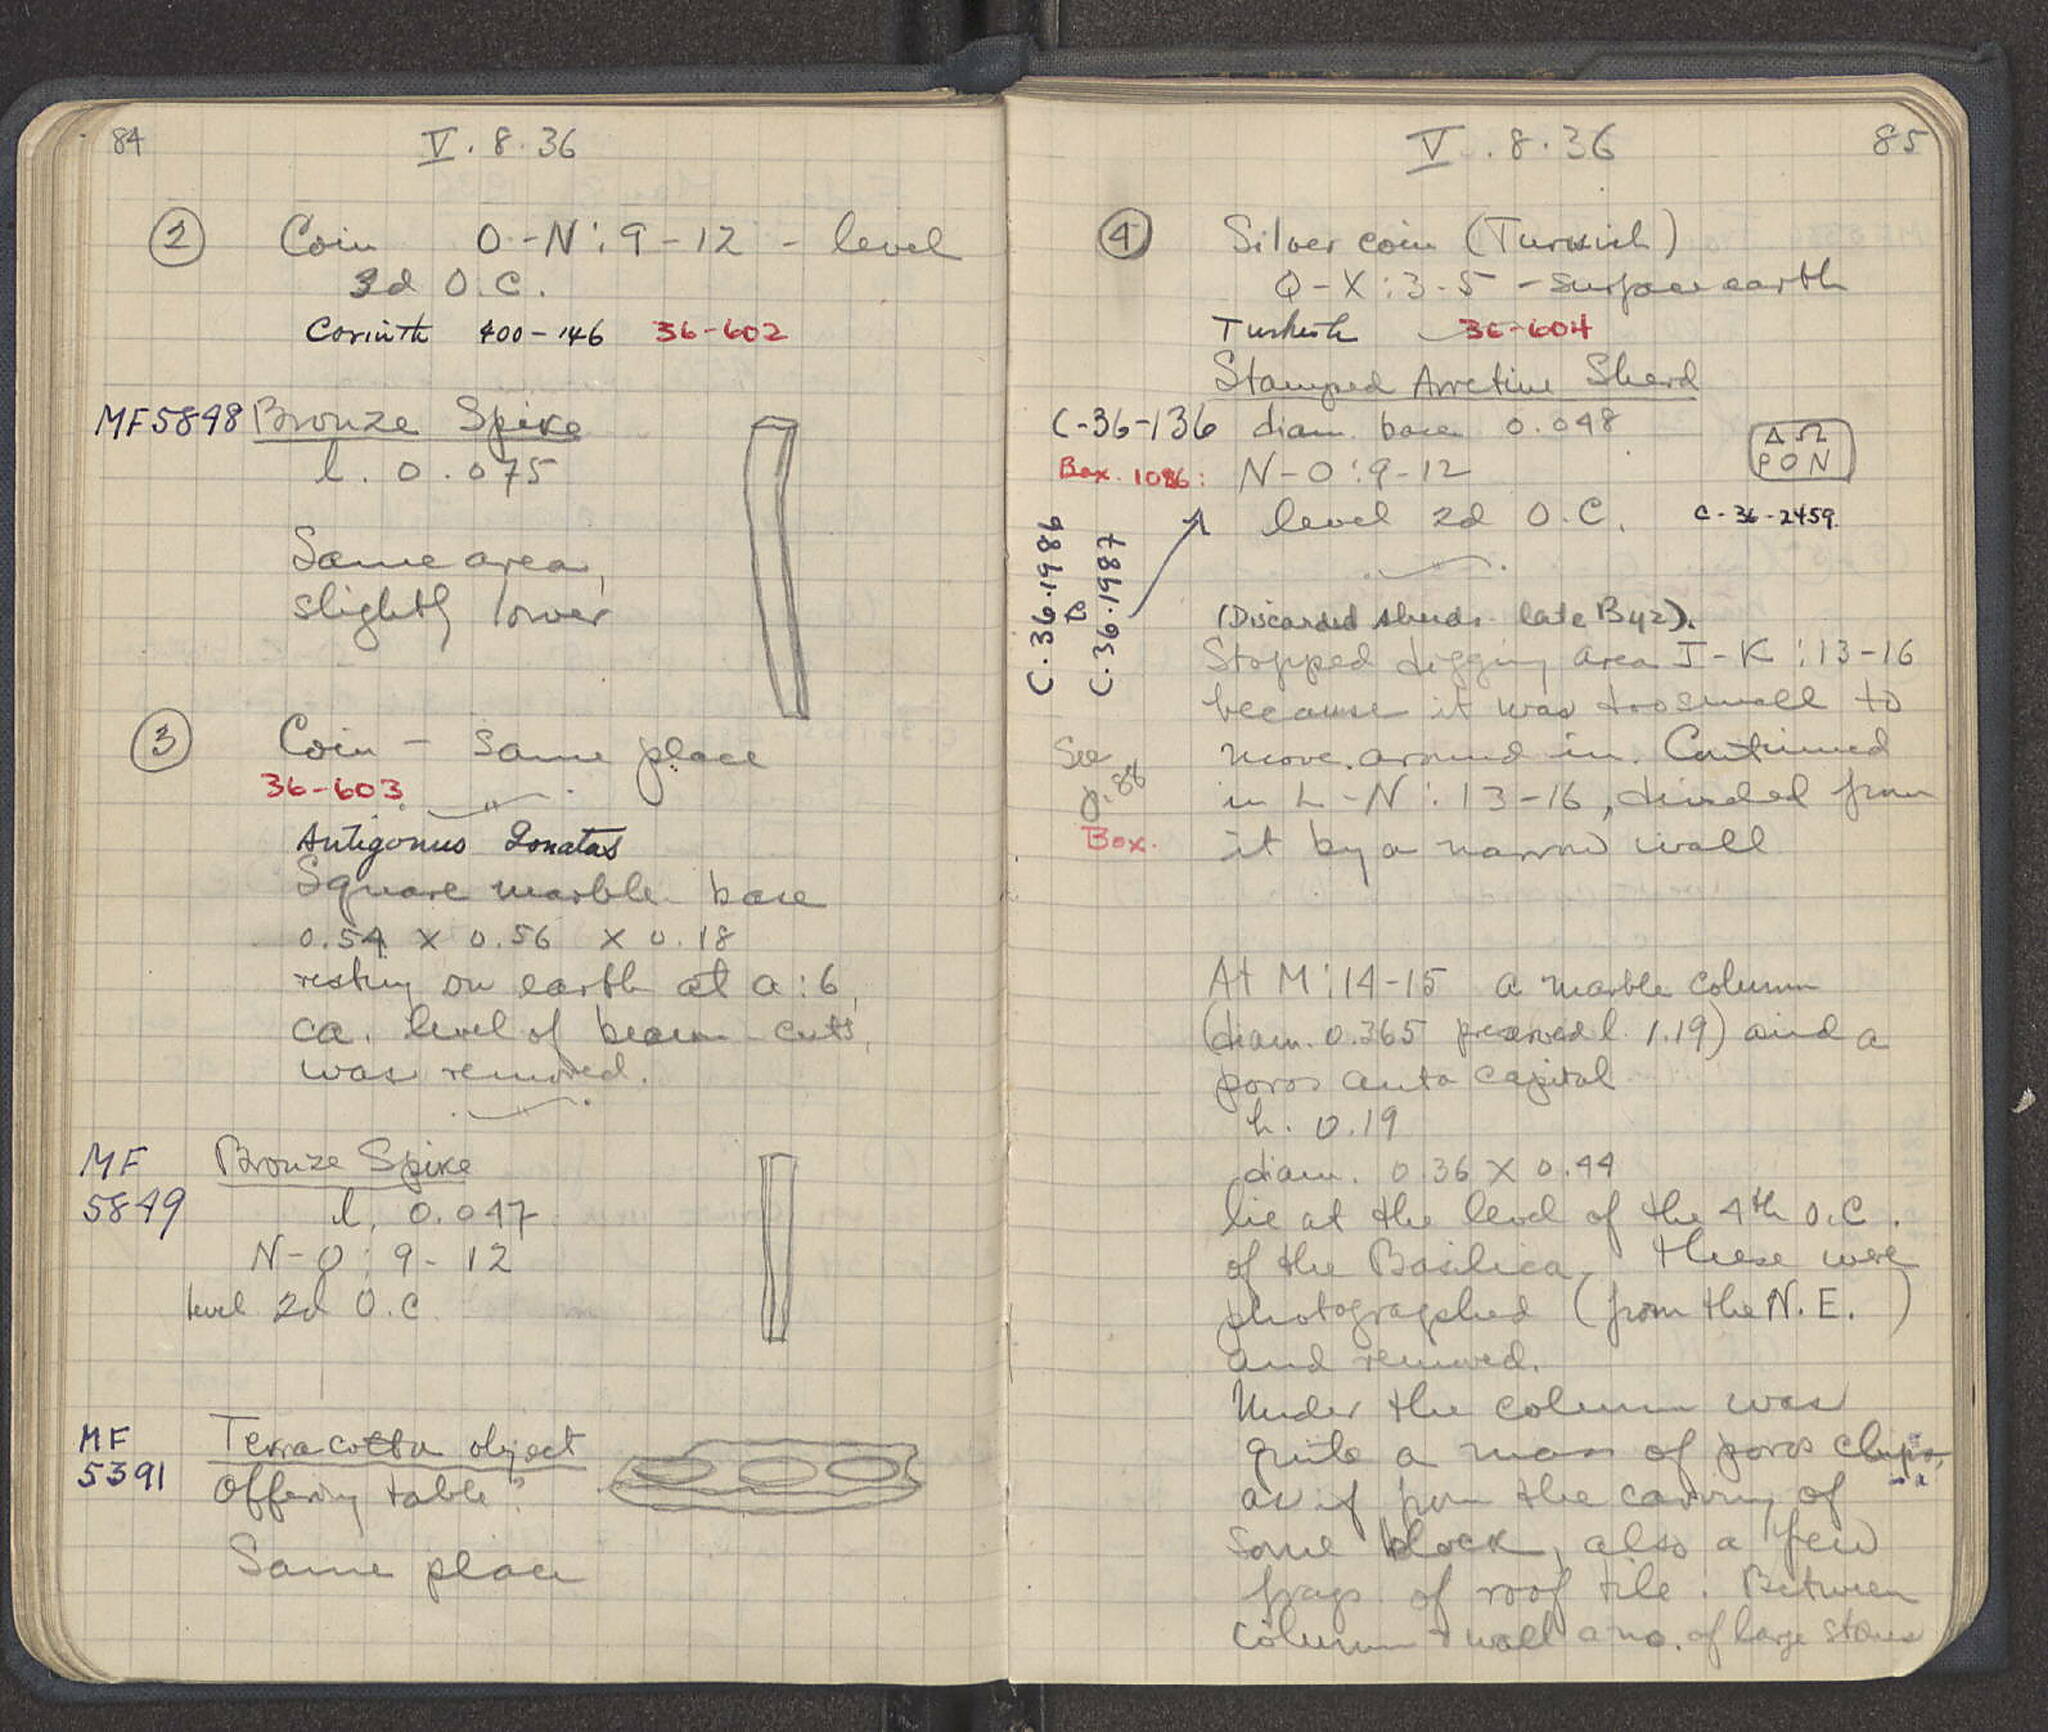 84
V. 8. 36
② Coin O-N:9-12 - level
3d O.C.
Corinth 400-146 36-602
MF5848 Bronze Spike
l. 0.075
Same area,
slightly lower
③ Coin - same place
36-603
Antigonus Gonatas
Square marble base
0.54 x 0.56 x 0.18
resting on earth at a:6,
ca. level of beam-cuts,
was removed.
MF
5849
Bronze Spike
l. 0.047
N-O:9-12
level 2d O.C.
MF
5391
Terracotta object
Offering table?
Same place
V. 8. 36
85
④ Silver coin (Turkish)
Q-X:3-5 - Surface earth
Turkish 36-604
Stamped Arretine Sherd
C-36-136 diam. base 0.048
ΔΩ
ΡΟΝ
Box. 1086: N-O:9-12
level 2d O.C. C-36-2459.
C.36.1986
C.36.1987
(Discarded sherds late Byz).
Stopped digging area I-K:13-16
because it was too small to
move around in. Continued
in L-N:13-16, divided from
it by a narrow wall
See
p. 88
Box.
At M:14-15 a marble column
(diam. 0.365 preserved l. 1.19) and a
poros anta capital
h. 0.19
diam. 0.36 X 0.44
lie at the level of the 4th O.C.
of the Basilica. These were
photographed (from the N.E. )
and removed.
Under the column was
quite a mass of poros chips,
as if from the carving of
some block, also a few
frags of roof tile. Between
column & wall a no. of large stones